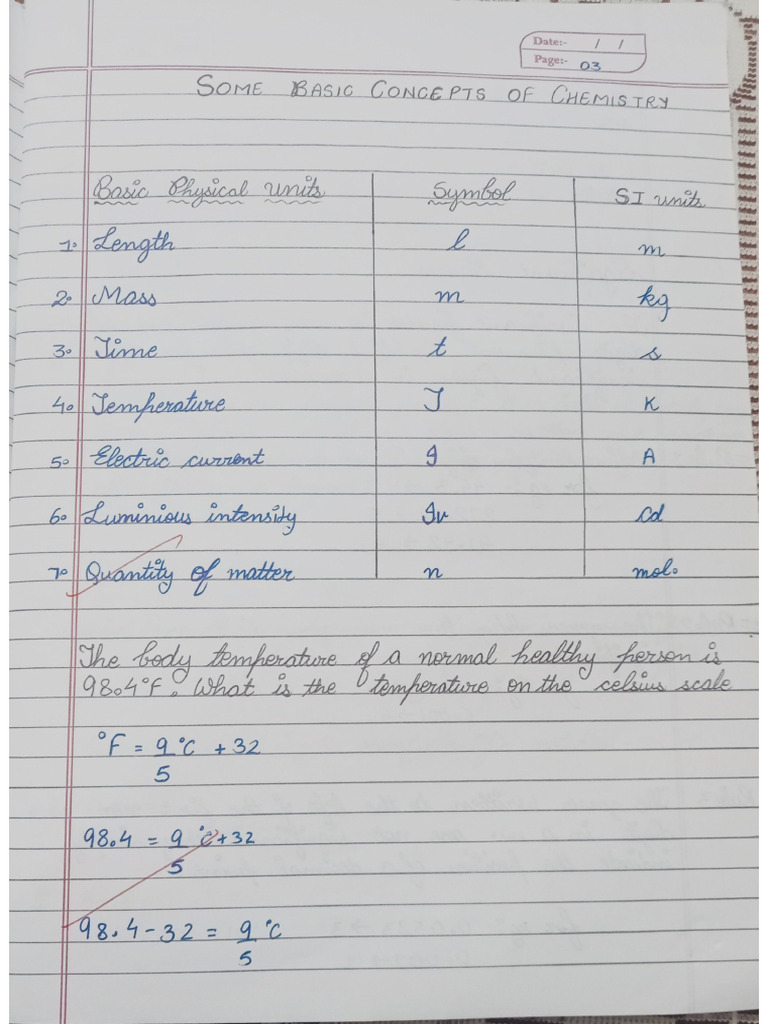 Date:- / /
Page:- 03
SOME BASIC CONCEPTS OF CHEMISTRY
Basic Physical units Symbol SI units
1. Length l m
2. Mass m kg
3. Time t s
4. Temperature T K
5. Electric current I A
6. Luminious intensity Iv Cd
7. Quantity of matter n mol.
The body temperature of a normal healthy person is
98.4°F. What is the temperature on the celsius scale
°F = 9/5 °C + 32
98.4 = 9/5 °C + 32
98.4 - 32 = 9/5 °C